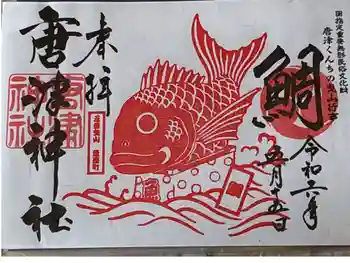 国指定重要無形民俗文化財
唐津くんちの曳山行事
鯛
令和六年
五月十五日
奉拝
唐津神社
唐津神社
魚屋町